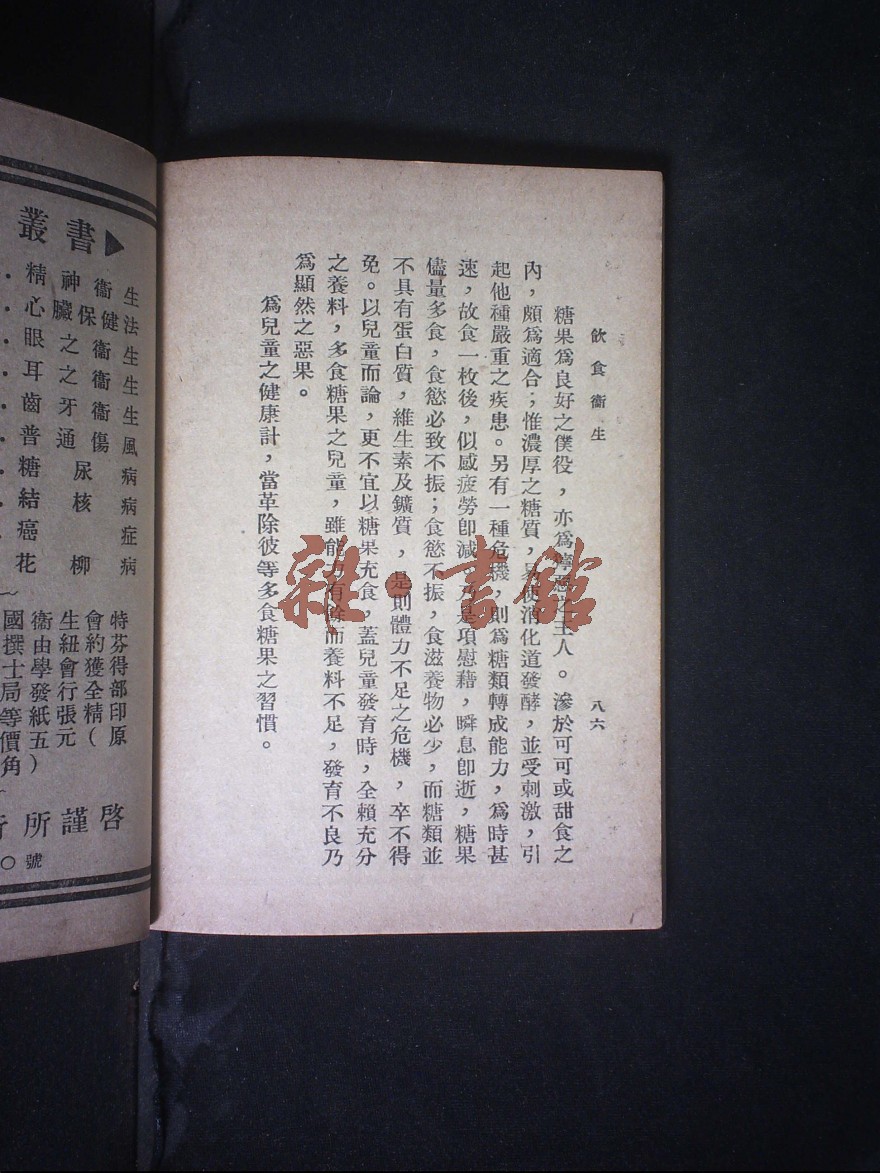 飲食衞生 八六
糖果爲良好之僕役,亦爲獰惡之主人。滲於可可或甜食之
內,頗爲適合;惟濃厚之糖質,易使消化道發酵,並受刺激,引
起他種嚴重之疾患。另有一種危機,則爲糖類轉成能力,爲時甚
速,故食一枚後,似感疲勞卽減,乃是項慰藉,瞬息卽逝,糖果
儘量多食,食慾必致不振;食慾不振,食滋養物必少,而糖類並
不具有蛋白質,維生素及鑛質,是則體力不足之危機,卒不得
免。以兒童而論,更不宜以糖果充食,蓋兒童發育時,全賴充分
之養料,多食糖果之兒童,雖能力有餘而養料不足,發育不良乃
爲顯然之惡果。
爲兒童之健康計,當革除彼等多食糖果之習慣。
雜·書館
叢書
精神衞生
心臟保健法
眼之衞生
耳之衞生
齒牙衞生
普通傷風
糖尿病
結核病
癌症
花柳病
國衞生會特
撰由紐約芬
士學會獲得
局發行全部
等紙張精印
價五元(原
角)
所謹啓
〇號